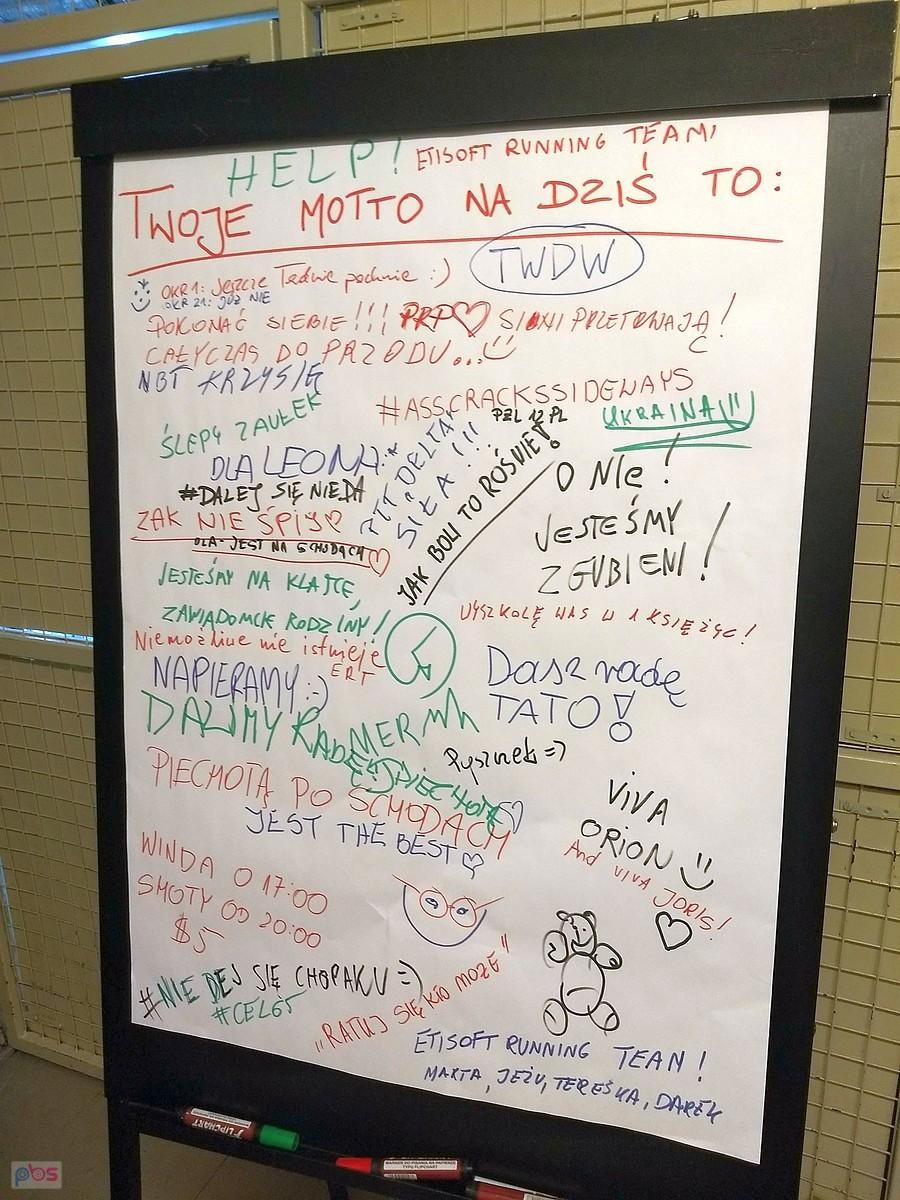 HELP! ETISOFT RUNNING TEAM!
TWOJE MOTTO NA DZIŚ TO:
TWDW
OKR 1: Jeszcze
OKR 21: JUŻ NIE
POKONAĆ SIEBIE!!! PRP
CAŁY CZAS DO PRZODU...
NBT KRZYSIĘ
#ASSCRACKSSIDEWAYS
PZL 12 PL
UKRAINA
ŚLEPY ZAUŁEK
DLA LEONA
PIT DELTA
SIŁA!!!
JAK BOLI TO ROŚNIE!
O NIE!
#DALEJ SIĘ NIEDA
ZAK NIE ŚPI
JEST NA SCHODACH
JESTEŚMY
ZGUBIENI!
JESTEŚMY NA KLAJCE,
ZAWIADOMCIE RODZINY!
WYSZKOLĘ WAS W 1 KSIĘŻYC!
Niemożliwe nie istnieje
ERT
NAPIERAMY :)
Dasz radę
TATO!
DALIMY RADĘ
MERM
PIECHOTĄ PO SCHODACH
JEST THE BEST
VIVA
ORION
And VIVA JORIS!
WINDA O 17:00
SMOTY OD 20:00
$5
#NIE DEJ SIĘ CHOPAKU =)
#CEL65
„RATUJ SIĘ KTO MOŻE"
ETISOFT RUNNING TEAM!
MARTA, JEŻU, TEREŚKA, DAREK
FLIPCHART
MARKER DO PISANIA NA PAPIERZE
TYPU FLIPCHART
pbs